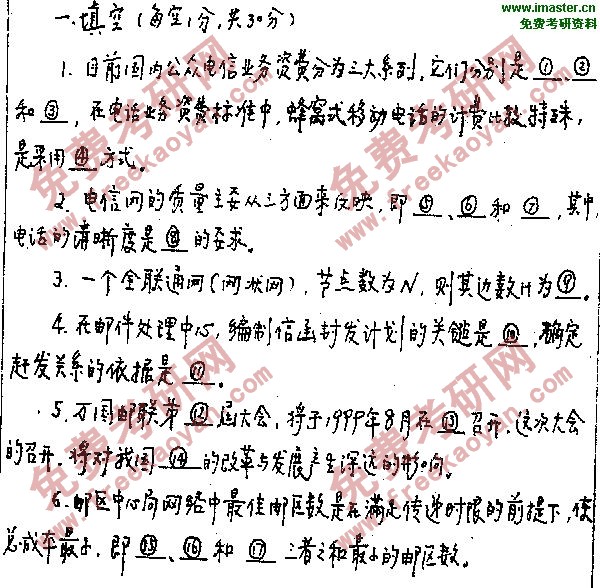 www.imaster.cn
免费考研资料
一.填空(每空1分,共30分)
1. 目前国内公众电信业务资费分为三大系列,它们分别是①、②
和③,在电话业务资费标准中,蜂窝式移动电话的计费比较特殊,
是采用④方式。
2. 电信网的质量主要从三方面来反映,即⑤、⑥和⑦,其中,
电话的清晰度是⑧的要求。
3. 一个全联通网(网状网),节点数为N,则其边数H为⑨。
4. 在邮件处理中心,编制信函封发计划的关键是⑩,确定
赶发关系的依据是⑪。
5. 万国邮联第⑫届大会,将于1999年8月在⑬召开,这次大会
的召开,将对我国⑭的改革与发展产生深远的影响。
6. 邮区中心局网络中最佳邮区数是在满足传递时限的前提下,使
总成本最小,即⑮、⑯和⑰三者之和最小的邮区数。
免费考研网
www.freekaoyan.com